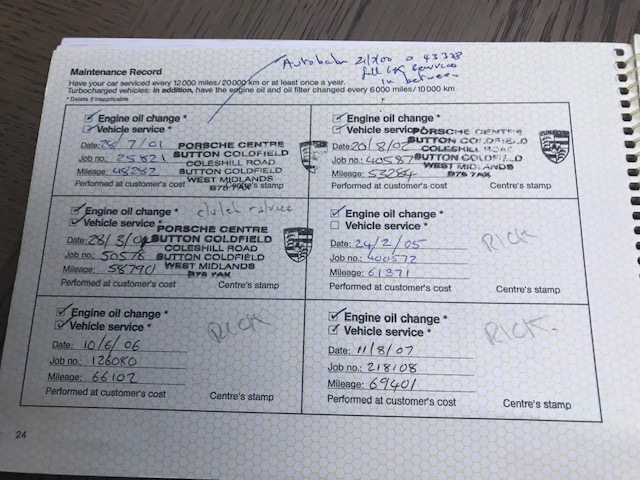 Autobahn 21/2/00 @ 43328
full C+G services
in between
Maintenance Record
Have your car serviced every 12 000 miles/20 000 km or at least once a year.
Turbocharged vehicles: in addition, have the engine oil and oil filter changed every 6 000 miles/10 000 km
* Delete if inapplicable
Engine oil change *
Vehicle service *
Date: 28/7/01
Job no.: 25821
Mileage: 48282
Performed at customer's cost
Centre's stamp
PORSCHE CENTRE
SUTTON COLDFIELD
COLESHILL ROAD
SUTTON COLDFIELD
WEST MIDLANDS
B75 7AX
Engine oil change *
Vehicle service *
Date: 20/8/02
Job no.: 40587
Mileage: 53284
Performed at customer's cost
Centre's stamp
PORSCHE CENTRE
SUTTON COLDFIELD
COLESHILL ROAD
SUTTON COLDFIELD
WEST MIDLANDS
B75 7AX
Engine oil change *
Vehicle service *
Date: 28/3/04
Job no.: 50578
Mileage: 58790
Performed at customer's cost
Centre's stamp
PORSCHE CENTRE
SUTTON COLDFIELD
COLESHILL ROAD
SUTTON COLDFIELD
WEST MIDLANDS
B75 7AX
Engine oil change *
Vehicle service *
Date: 24/2/05
Job no.: 400572
Mileage: 61371
Performed at customer's cost
Centre's stamp
RICK
Engine oil change *
Vehicle service *
Date: 10/6/06
Job no.: 126080
Mileage: 66102
Performed at customer's cost
Centre's stamp
RICK
Engine oil change *
Vehicle service *
Date: 11/8/07
Job no.: 218108
Mileage: 69401
Performed at customer's cost
Centre's stamp
RICK
24